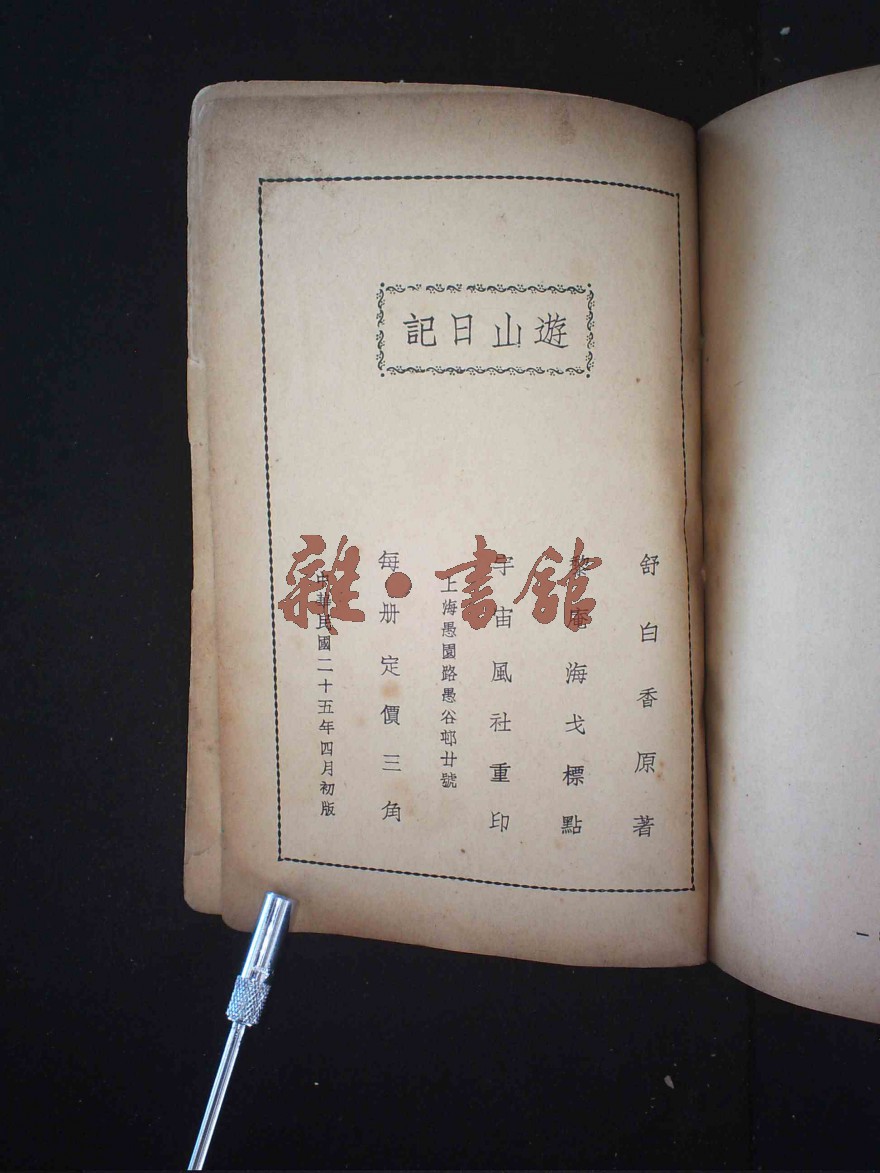 遊山日記
舒白香原著
黎庵海戈標點
宇宙風社重印
上海愚園路愚谷邨廿號
每册定價三角
中華民國二十五年四月初版
雜·書館
一